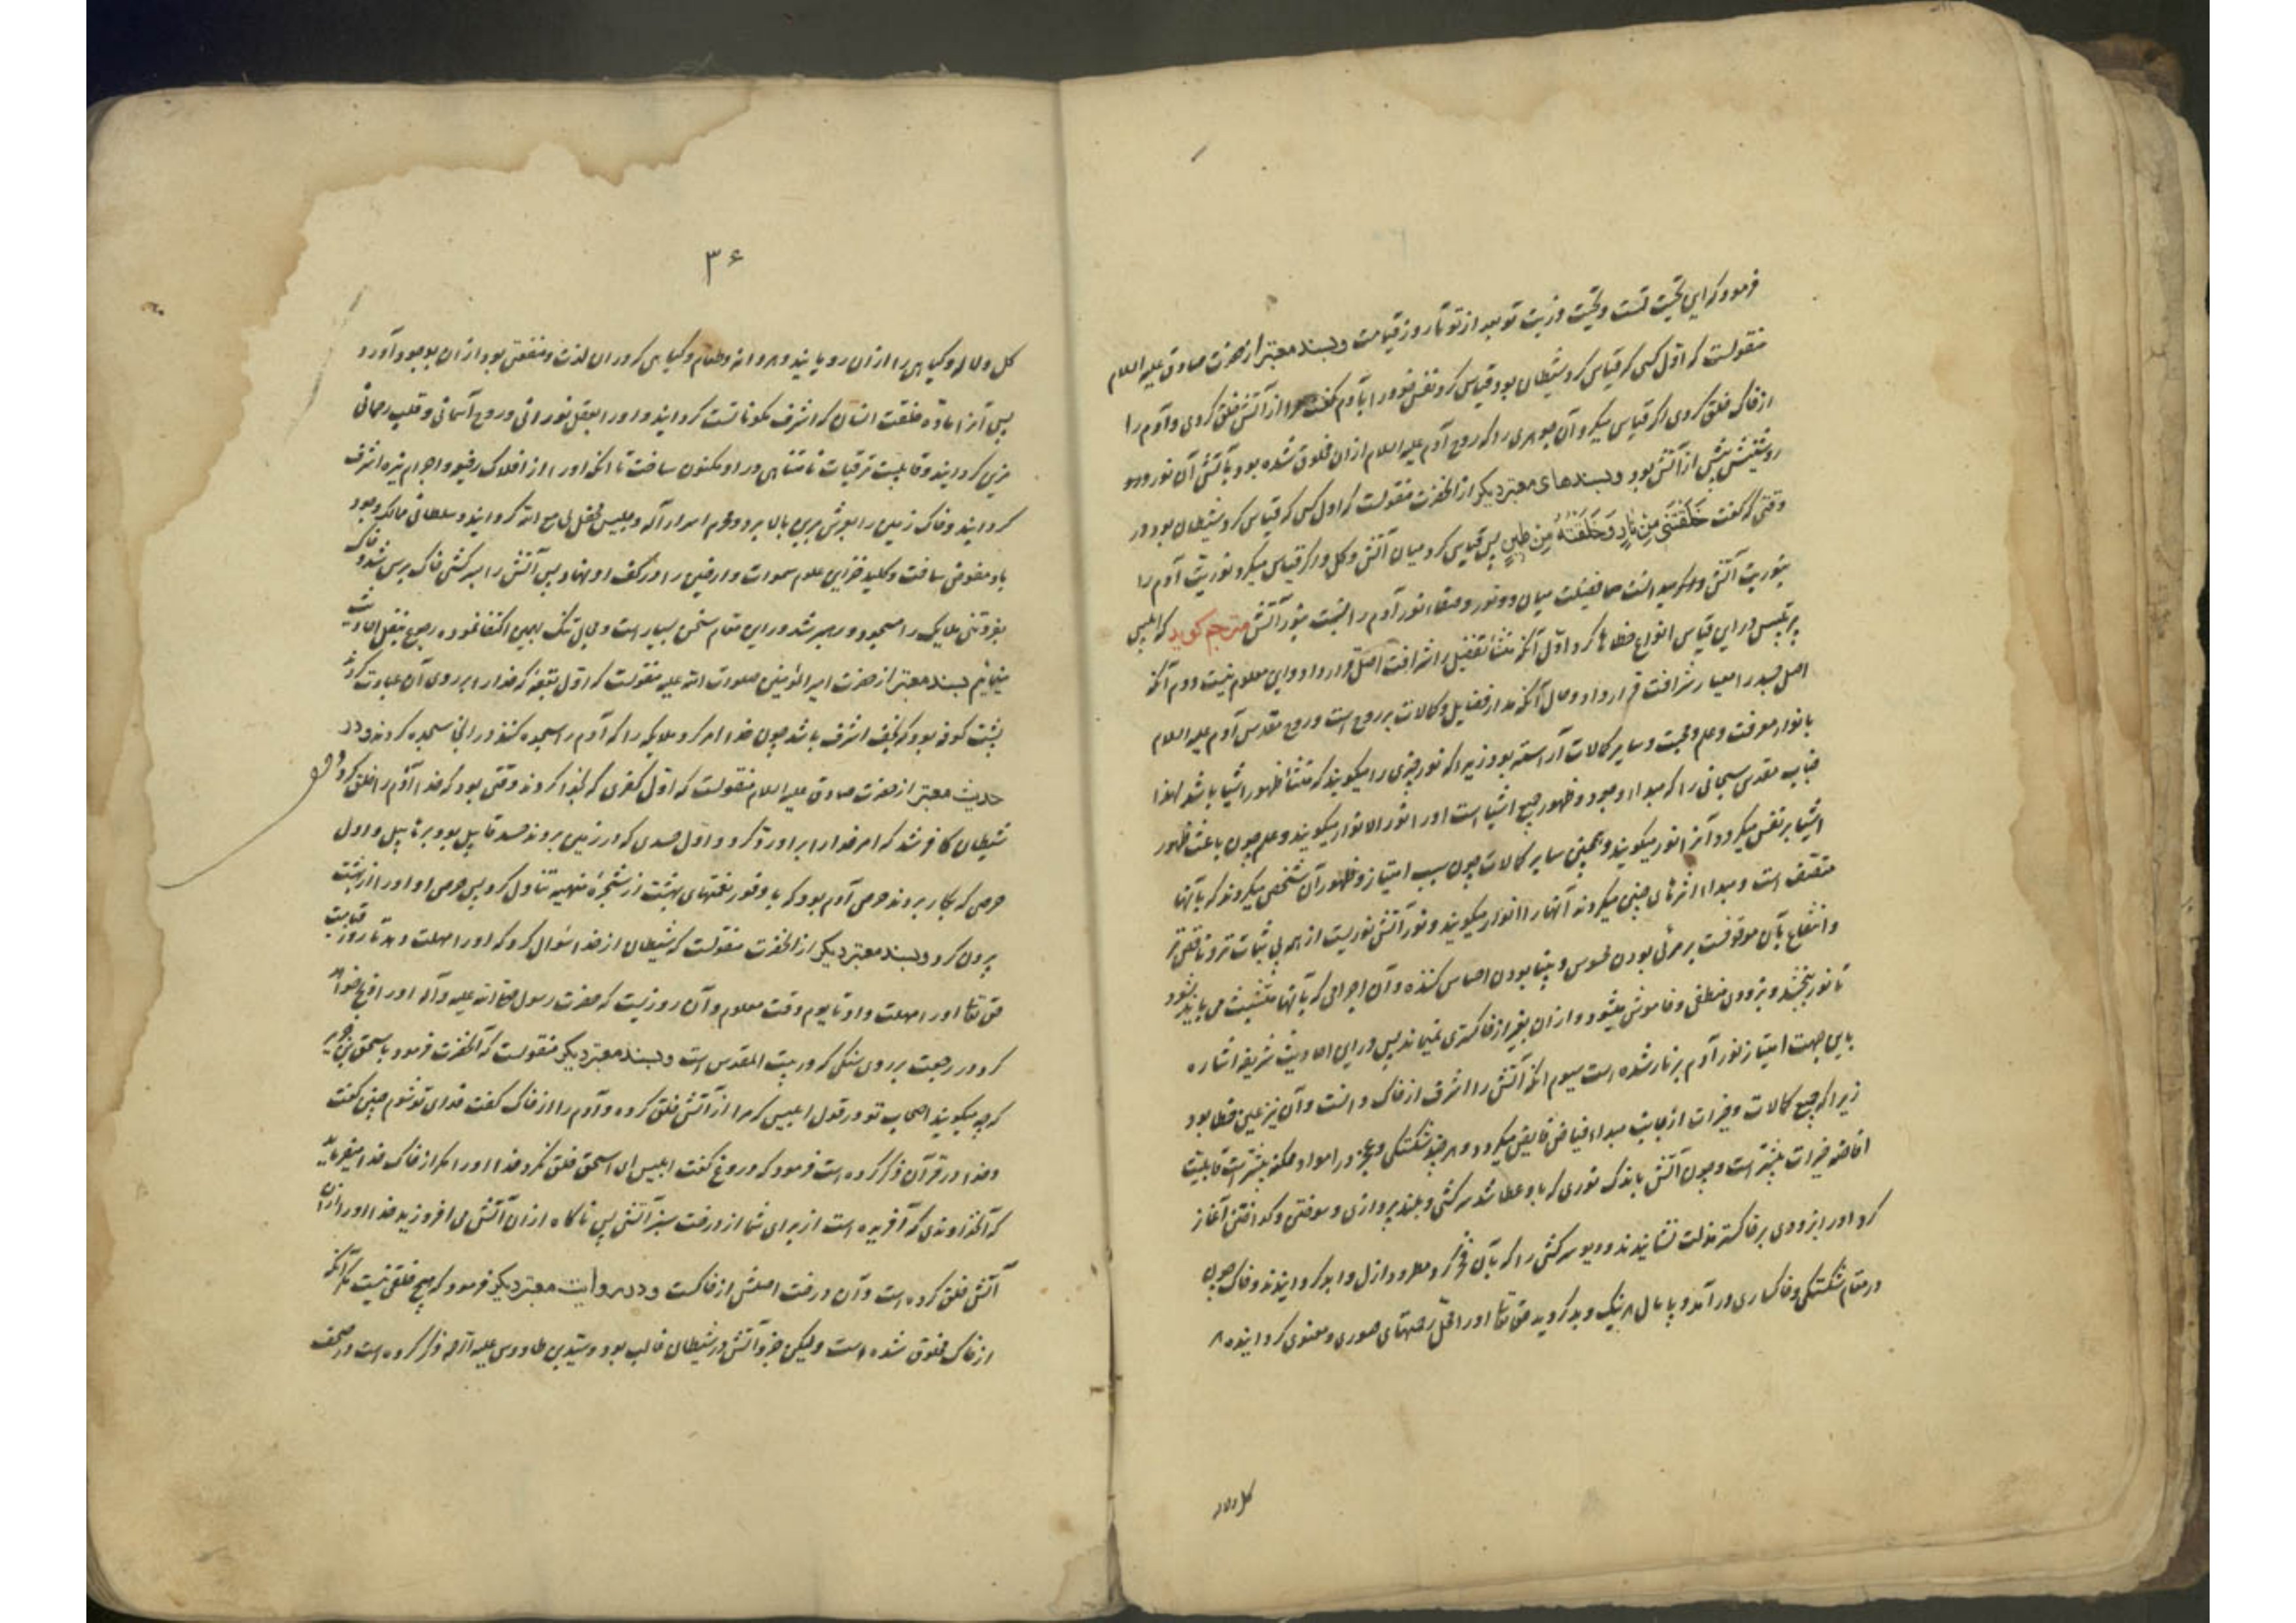 فرمود که این تحیت تست و تحیت ذریت تو بعد از تو تا روز قیامت و بسند معتبر از حضرت صادق علیه السلام
منقولست که اول کسی که قیاس کرد شیطان بود قیاس کرد نفس خود را با آدم گفت مرا از آتش خلق کردی و آدم را
از خاک خلق کردی اگر قیاس میکرد آن جوهری را که روح آدم علیه السلام ازان مخلوق شده بود با آتش آن نور
روشنیش بیش از آتش بود و بسندهای معتبر دیگر از آنحضرت منقولست که اول کسی که قیاس کرد شیطان بود در
وقتی که گفت خَلَقتَنی مِن نارٍ وَ خَلَقتَهُ مِن طینٍ پس قیاس کرد میان آتش و گل و اگر قیاس میکرد نوریت آدم را
بنوریت آتش هر آینه میدانست فضیلت میان دو نور و صفاء نور آدم را نسبت بنور آتش مترجم گوید که ابلیس
پرتلبیس در این قیاس انواع خطاها کرد اول آنکه منشأ تفضیل را شرافت اصل قرار داد و این معلوم نیست دوم آنکه
اصل جسد را معیار شرافت قرار داد و حال آنکه مدار فضایل و کمالات بر روح است و روح مقدس آدم علیه السلام
بانوار معرفت و علم و محبت و سایر کمالات آراسته بود زیرا که نور چیزی را میگویند که منشأ ظهور اشیا باشد لهذا
جناب مقدس سبحانی را که مبداء وجود و ظهور جمیع اشیا است او را نور الانوار میگویند و علم چون باعث ظهور
اشیا بر نفس میگردد آنرا نور میگویند و همچنین سایر کمالات چون سبب امتیاز و ظهور آن شخص میگردند که بآنها
متصف است و مبداء اثرهای چنین میگردند آنها را انوار میگویند و نور آتش نوریست از همه بی ثبات تر و ناقص تر
و انتفاع بآن موقوفست بر مرئی بودن محسوس و بینا بودن احساس کننده و آن اجزائی که بآنها متشبث می باید بشود
تا نور بخشد و بزودی منطفی و خاموش میشود و ازان بغیر از خاکستری نمی ماند پس در این احادیث شریفه اشاره
باین جهت امتیاز نور آدم بر نار شده است سیوم آنکه آتش را اشرف از خاک دانست و آن نیز عین خطا بود
زیرا که جمیع کمالات و خیرات از جانب مبداء فیاض فایض میگردد و هر چند شکستگی و عجز در مواد ممکنه بیشتر است قابلیت
افاضه خیرات بیشتر است و چون آتش باندک نوری که باو عطا شد سرکشی و بلند پروازی و سوختن و گداختن آغاز
کرد او را بزودی بر خاکستر مذلت نشانیدند و دیو سرکشی را که بآن فخر کرد مطرود ازل و ابد گردانیدند و خاک چون
در مقام شکستگی و خاکساری در آمد و پامال هر نیک و بد گردید حق تعا او را محل رحمتهای صوری و معنوی گردانیده
گل و لاله
۳۶
گل و لاله و گیاهی را ازان رویانید و هر دانه و طعام و گیاهی که در ان لذت و منفعتی بود ازان بوجود آورد
پس آنرا ماده خلقت انسان که اشرف مکوناتست گردانید و او را بعقل نورانی و روح آسمانی و قلب رحمانی
مزین گردانید و قابلیت ترقیات نامتناهی در او مکنون ساخت تا آنکه او را از افلاک رفیع و اجرام نیره اشرف
گردانید و خاک زمین را بعرش برین بالا برد و محرم اسرار اله و جلیس محفل لی مع الله گردانید و سلطانی ممالک وجود
باو مفوض ساخت و کلید خزاین علوم سموات و ارضین را در کف او نهاد پس آتش را سرکشی خاک بر سر شد و خاک
بفروتنی ملایک را مسجود و رهبر شد در این مقام سخن بسیار است و مجال تنگ بهمین اکتفا نموده رجوع بنقل احادیث
مینمایم بسند معتبر از حضرت امیر المؤمنین صلوات الله علیه منقولست که اول بقعه که خدا را بر روی آن عبادت کردند
پشت کوفه بود که نجف اشرف باشد چون خدا امر کرد ملایکه را که آدم را سجده کنند در آنجا سجده کردند و در
حدیث معتبر از حضرت صادق علیه السلام منقولست که اول کفری که بخدا کردند وقتی بود که خدا آدم را خلق کرد و
شیطان کافر شد که امر خدا را بر او رد کرد و اول حسدی که در زمین بردند حسد قابیل بود بر هابیل و اول
حرصی که بکار بردند حرص آدم بود که با وفور نعمتهای بهشت از شجره منهیه تناول کرد پس حرص او او را از بهشت
بیرون کرد و بسند معتبر دیگر از آنحضرت منقولست که شیطان از خدا سؤال کرد که او را مهلت دهد تا روز قیامت
حق تعا او را مهلت داد تا یوم وقت معلوم و آن روزیست که حضرت رسول صلی الله علیه و آله او را ذبح خواهد
کرد در رجعت بر روی سنگی که در بیت المقدس است و بسند معتبر دیگر منقولست که آنحضرت فرمود باسحق بن حریر
که چه میگویند اصحاب تو در قول ابلیس که مرا از آتش خلق کرده و آدم را از خاک گفت فدای تو شوم چنین گفت
و خدا در قرآن ذکر کرده است فرمود که دروغ گفت ابلیس ای اسحق خلق نکرد خدا او را مگر از خاک خدا میفرماید
که آنخداوندی که آفریده است از برای شما از درخت سبز آتش پس ناگاه ازان آتش می افروزید خدا او را ازان
آتش خلق کرده است و آن درخت اصلش از خاکست و در روایت معتبر دیگر فرمود که هیچ خلقی نیست مگر آنکه
از خاک مخلوق شده است ولیکن جزو آتش در شیطان غالب بود و سید بن طاووس علیه الرحمه ذکر کرده است در صحف